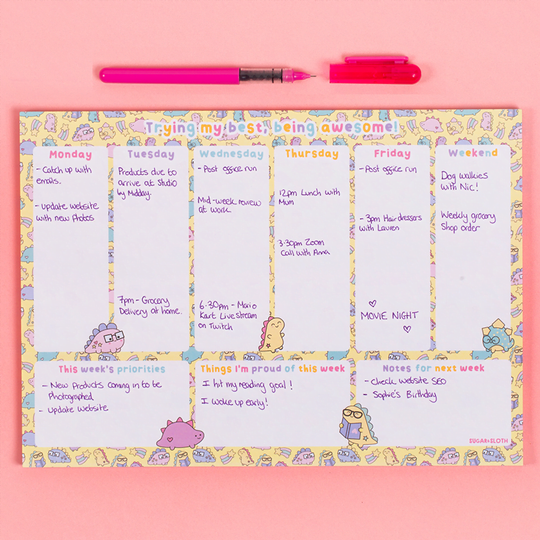 Trying my best, being awesome!
Monday
- Catch up with
emails.
- update website
with new Photos
Tuesday
Products due to
arrive at Studio
by Midday.
7pm - Grocery
Delivery at home.
Wednesday
- Post office run
Mid-week review
at work.
6:30pm - Mario
Kart Livestream
on Twitch
Thursday
12pm Lunch with
Mum
3:30pm Zoom
Call with Anna
Friday
- Post office run
- 3pm Hairdressers
with Lauren
MOVIE NIGHT
Weekend
Dog walkies
with Nic!
Weekly grocery
Shop order
This week's priorities
- New Products coming in to be
Photographed
- Update website
Things I'm proud of this week
I hit my reading goal!
I woke up early!
Notes for next week
- Check website SEO
- Sophie's Birthday
SUGAR & SLOTH